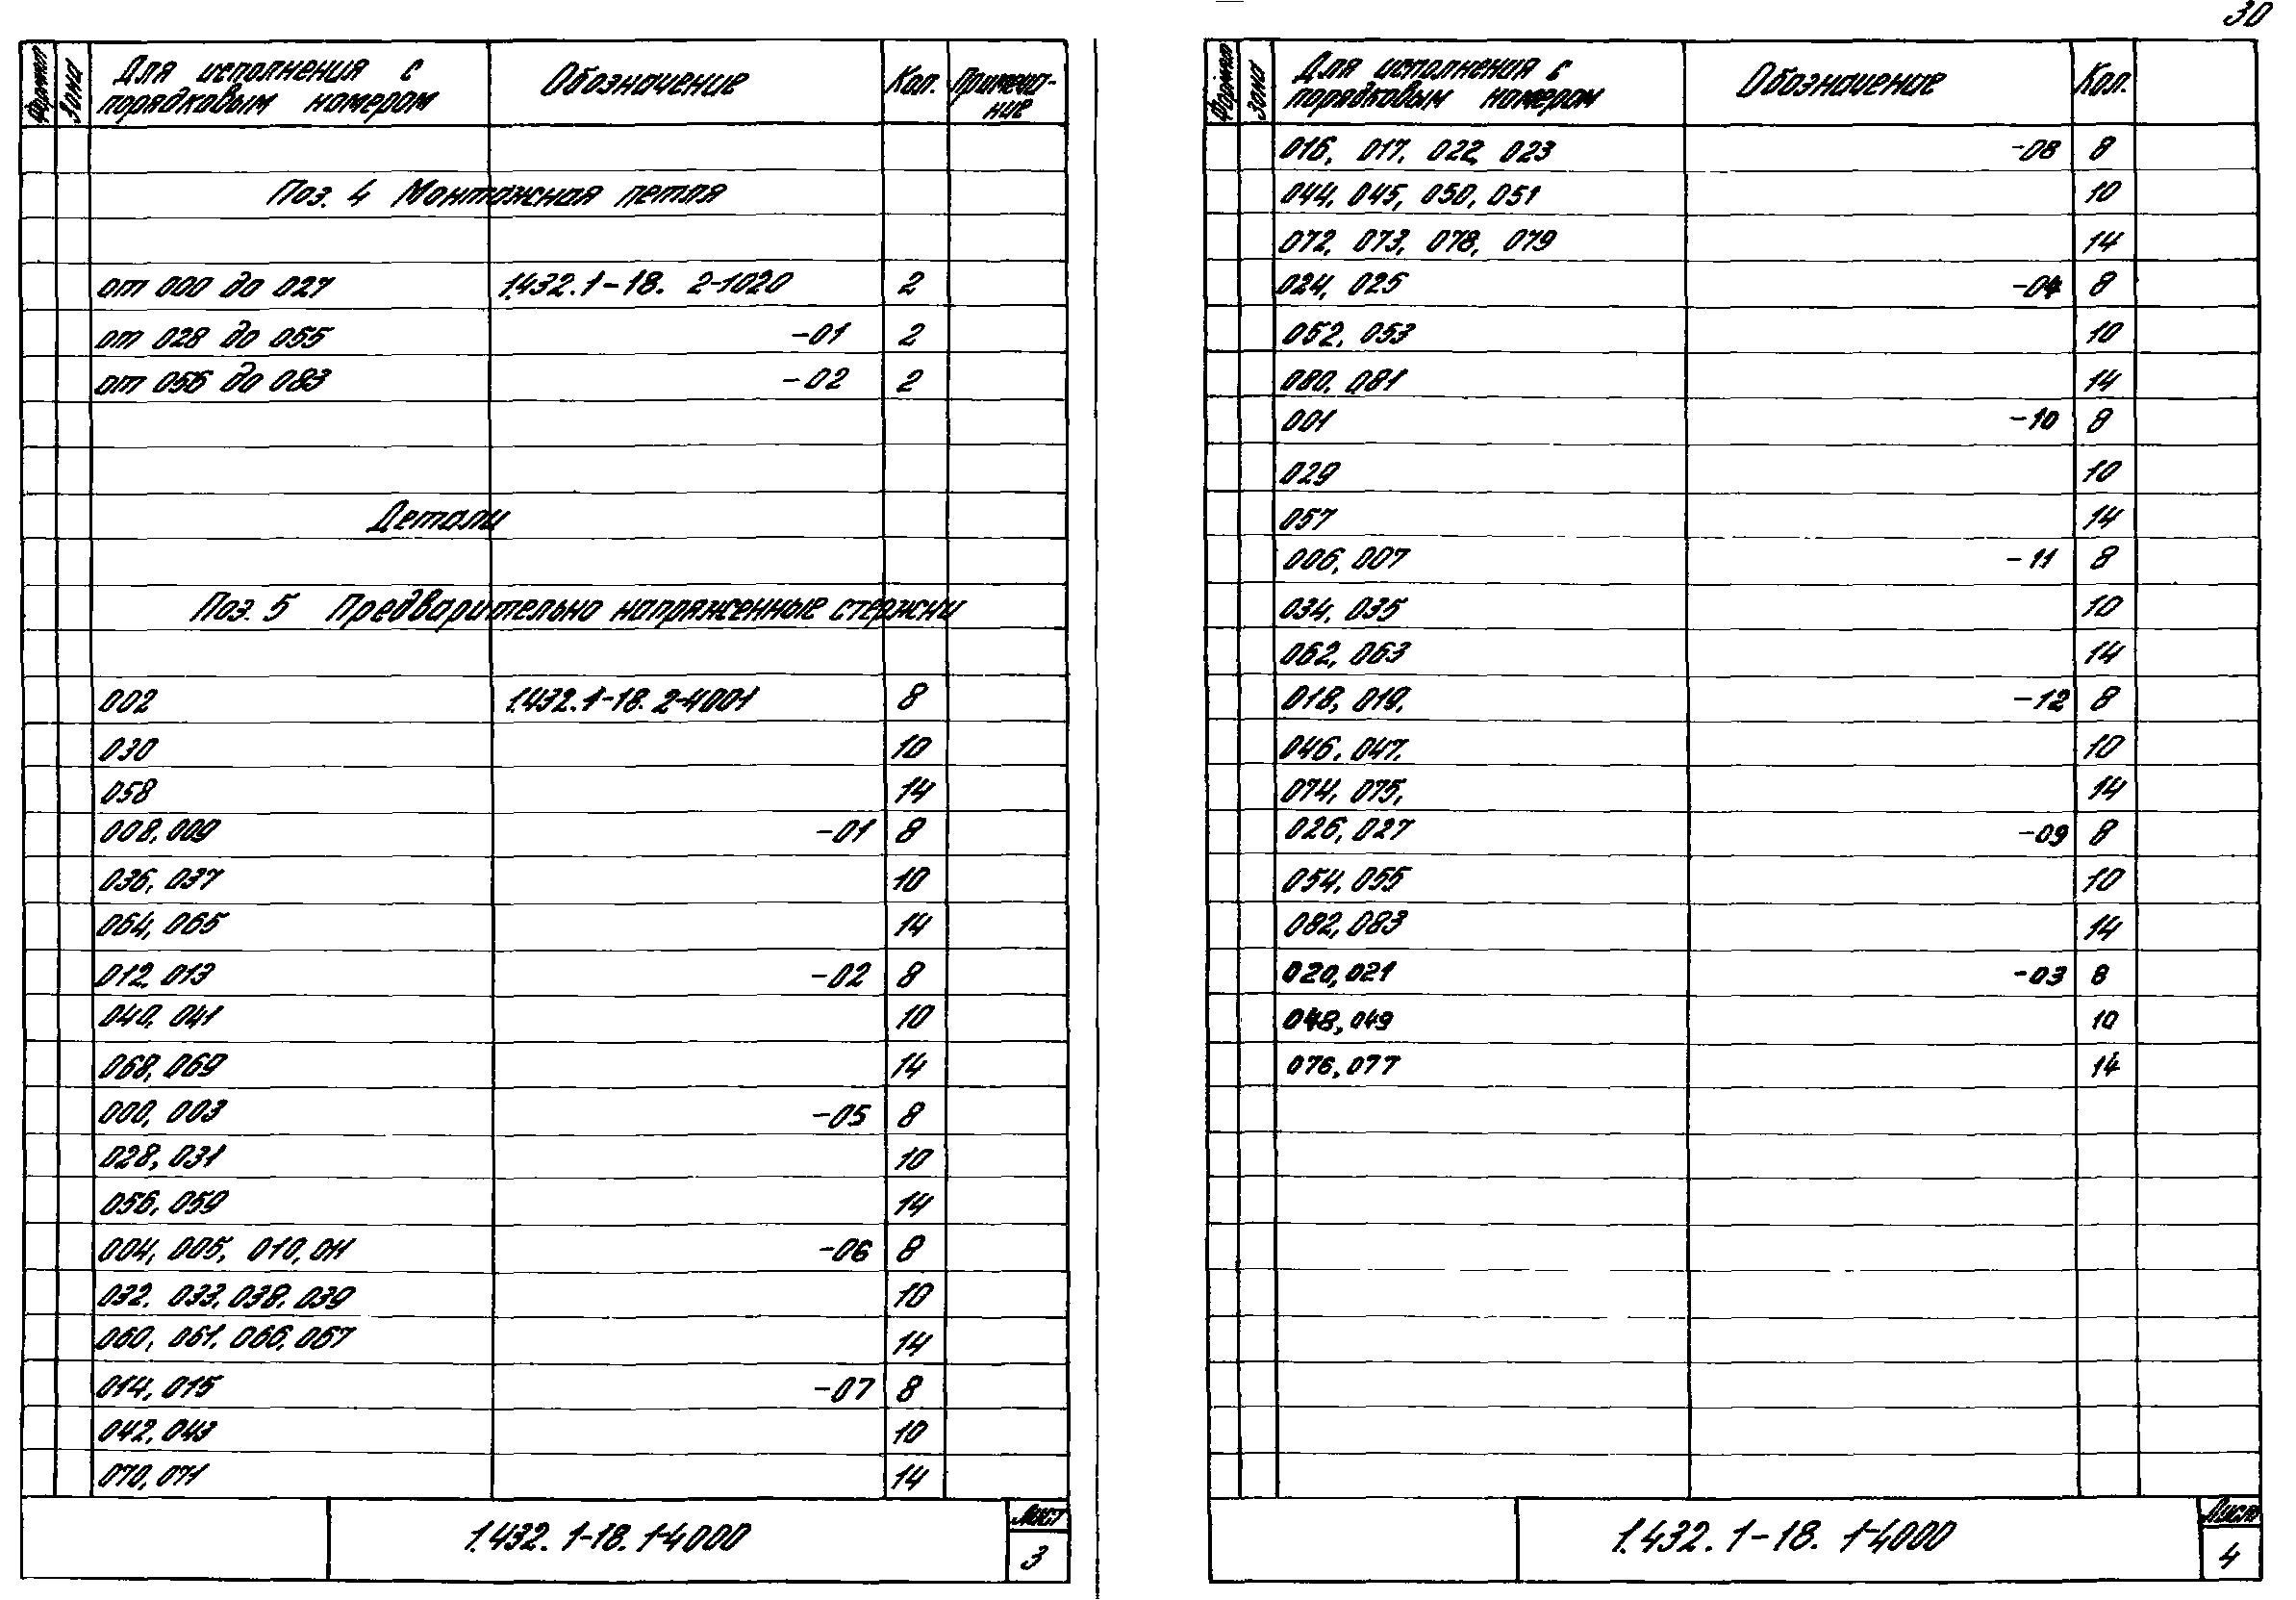 30
Формат Зона Для исполнения с порядковым номером Обозначение Кол. Примечание
Поз. 4 Монтажная петля
от 000 до 027 1.432.1-18. 2-1020 2
от 028 до 055 -01 2
от 056 до 083 -02 2
Детали
Поз. 5 Предварительно напряженные стержни
002 1.432.1-18. 2-4001 8
030 10
058 14
008, 009 -01 8
036, 037 10
064, 065 14
012, 013 -02 8
040, 041 10
068, 069 14
000, 003 -05 8
028, 031 10
056, 059 14
004, 005, 010, 011 -06 8
032, 033, 038, 039 10
060, 061, 066, 067 14
014, 015 -07 8
042, 043 10
070, 071 14
1.432. 1-18. 1-4000
Лист
3
Формат Зона Для исполнения с порядковым номером Обозначение Кол.
016, 017, 022, 023 -08 8
044, 045, 050, 051 10
072, 073, 078, 079 14
024, 025 -04 8
052, 053 10
080, 081 14
001 -10 8
029 10
057 14
006, 007 -11 8
034, 035 10
062, 063 14
018, 019, -12 8
046, 047. 10
074, 075, 14
026, 027 -09 8
054, 055 10
082, 083 14
020, 021 -03 8
048, 049 10
076, 077 14
1.432. 1-18. 1-4000
Лист
4